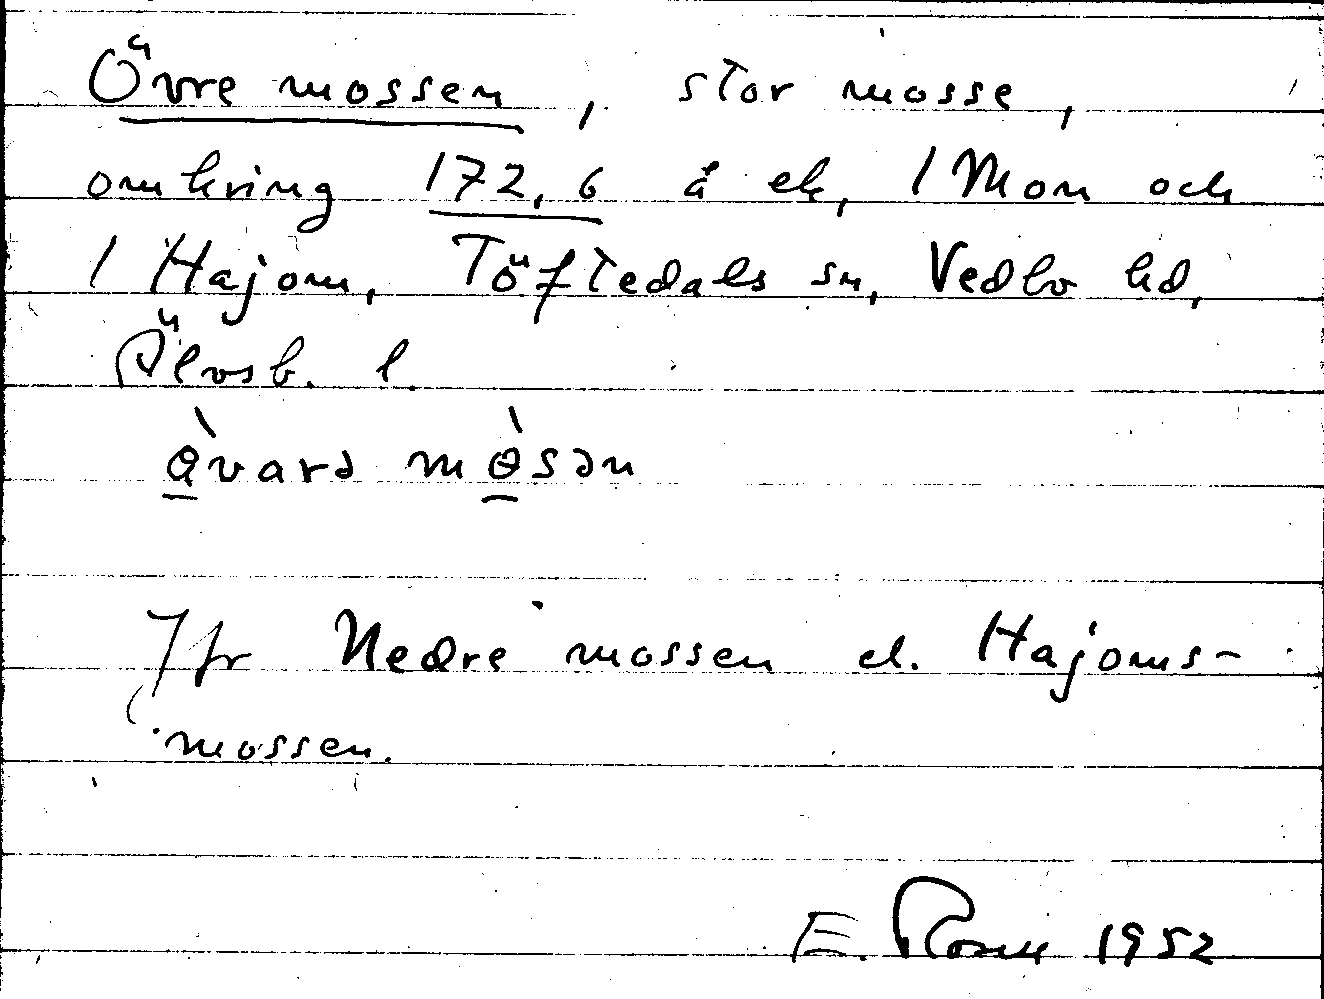 Övre mossen, stor mosse,
omkring 172,6 å ek, 1 Mon och
1 Hajom, Töftedals sn, Vedbo hd,
Älvsb. l.
ɵ̀varə mɵ̀sən
Jfr Nedre mossen el. Hajoms-
mossen.
E. Rosell 1952